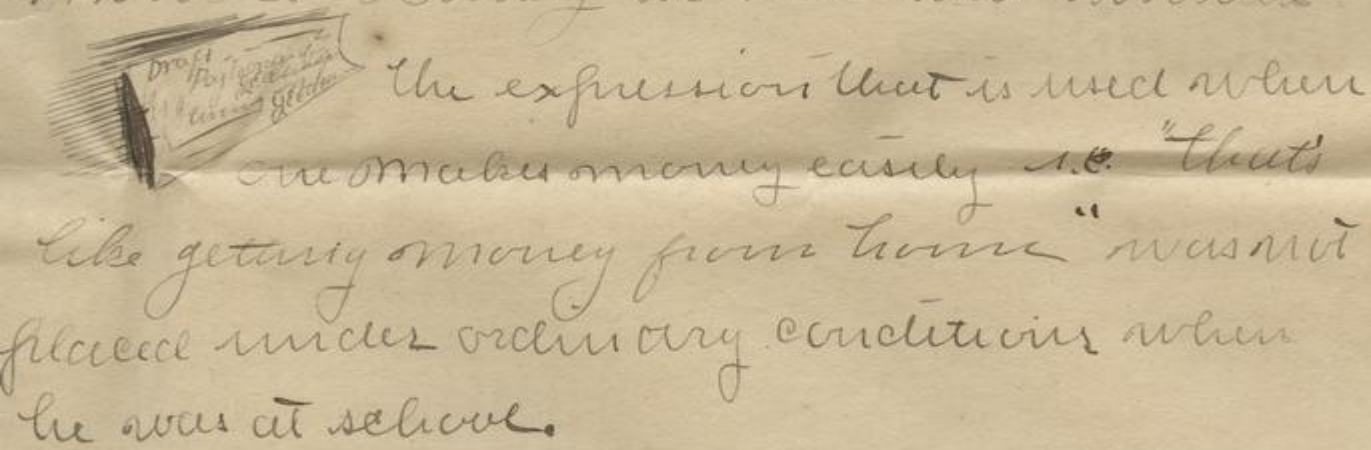 Draft
The expression that is used when
one makes money easily i.e. "that's
like getting money from home" was not
placed under ordinary conditions when
he was at school.